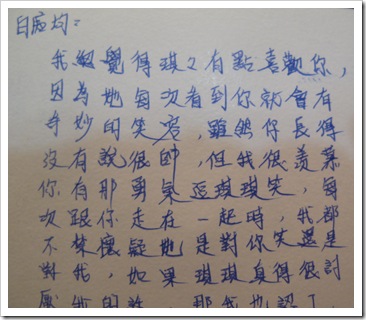 白均:
我覺得琪2有點喜歡你,
因為她每次看到你就會有
奇妙的笑容,雖然你長得
沒有說很帥,但我很羨慕
你有那勇氣逗琪琪笑,每
次跟你走在一起時,我都
不禁懷疑她是對你笑還是
對我,如果琪琪真得很討
厭我的話,那我也認了